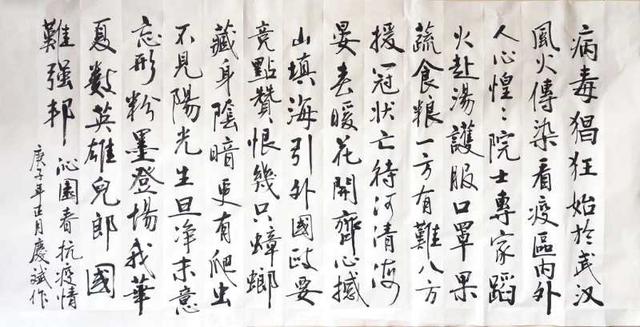 病毒猖狂始於武汉
風火傳染看疫區內外
人心惶:院士專家蹈
火赴湯護服口罩果
蔬食粮一方有難八方
援冠状亡待河清海
晏春暖花開齊心撼
山填海引外國政要
竞點贊恨幾只蟑螂
藏身陰暗更有爬虫
不見陽光生旦净末意
忘形粉墨登場我華
夏数英雄兒郎國
難强邦
沁園春抗疫情
庚子年正月慶斌作